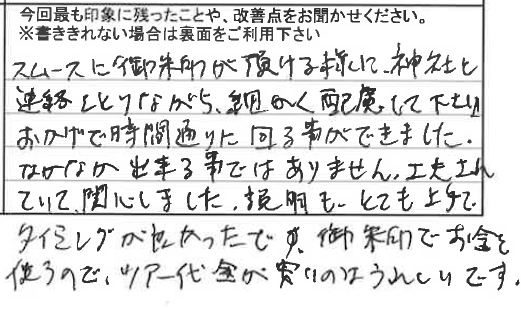 今回最も印象に残ったことや、改善点をお聞かせください。
※書ききれない場合は裏面をご利用下さい
スムースに御朱印が頂ける様に、神社と
連絡をとりながら、細かく配慮して下さり
おかげで時間通りに回る事ができました。
なかなか出来る事ではありません。工夫され
ていて、関心しました。説明も、とても上手で
タイミングが良かったです。御朱印でお金を
使うので、ツアー代金が安いのはうれしいです。